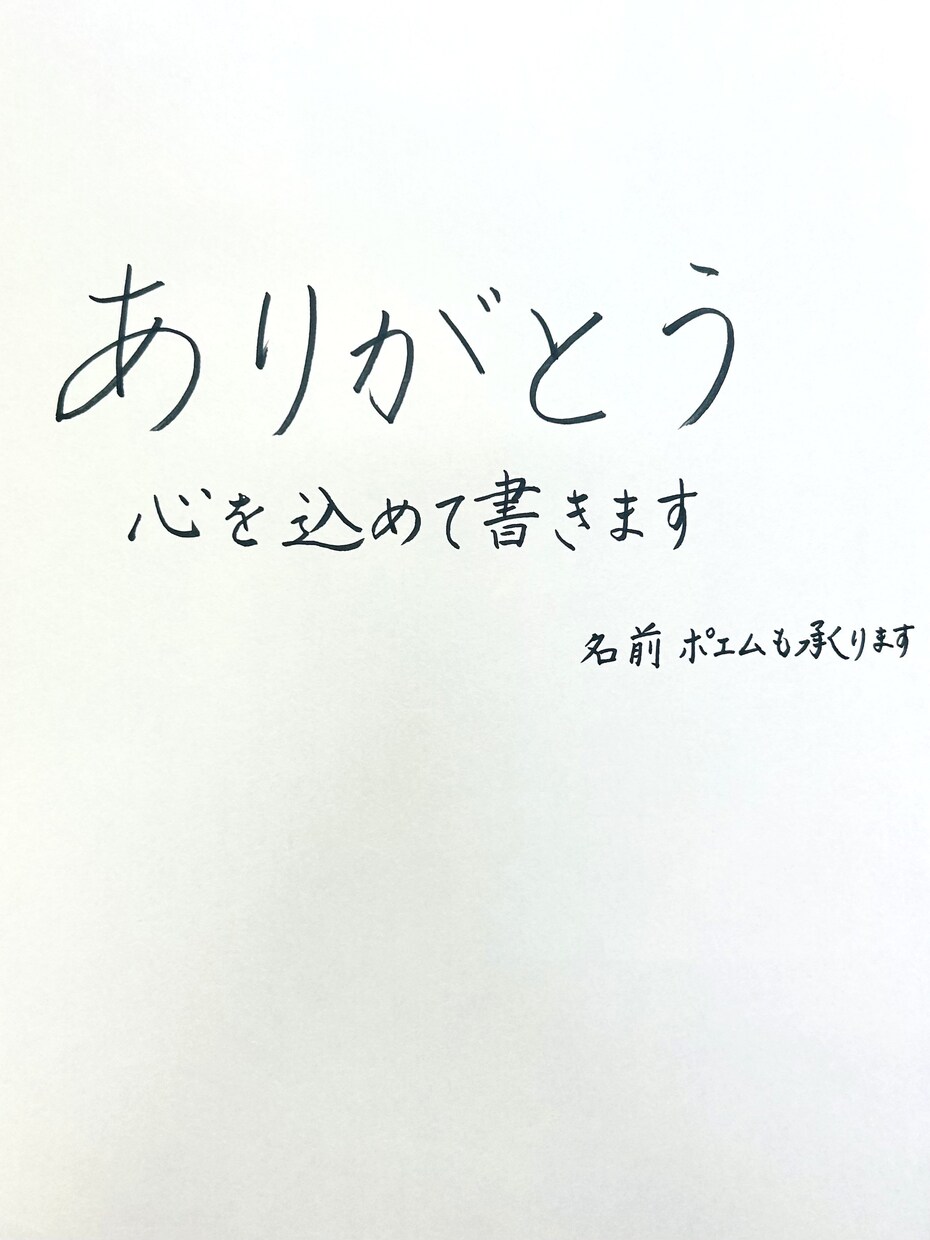 ありがとう
心を込めて書きます
名前 ポエムも承くります